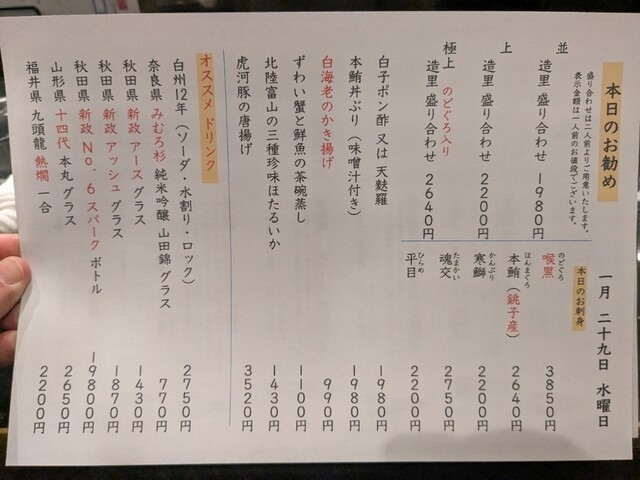 本日のお勧め
一月 二十九日 水曜日
盛り合わせは二人前よりご用意いたします。
表示金額は一人前のお値段でございます。
並 造里 盛り合わせ 1980円
上 造里 盛り合わせ 2200円
極上 のどぐろ入り
造里 盛り合わせ 2640円
本日のお刺身
のどぐろ
喉黒 3850円
ほんまぐろ
本鮪(銚子産) 2640円
かんぶり
寒鰤 2200円
たまかい
魂交 2750円
ひらめ
平目 2200円
白子ポン酢 又は 天麩羅 1980円
本鮪丼ぶり(味噌汁付き) 1980円
白海老のかき揚げ 990円
ずわい蟹と鮮魚の茶碗蒸し 1100円
北陸富山の三種珍味ほたるいか 1430円
虎河豚の唐揚げ 3520円
オススメ ドリンク
白州12年(ソーダ・水割り・ロック) 2750円
奈良県 みむろ杉 純米吟醸 山田錦 グラス 770円
秋田県 新政 アース グラス 1430円
秋田県 新政 アッシュ グラス 1870円
秋田県 新政 No.6 スパーク ボトル 19800円
山形県 十四代 本丸 グラス 2650円
福井県 九頭龍 熱燗 一合 2200円